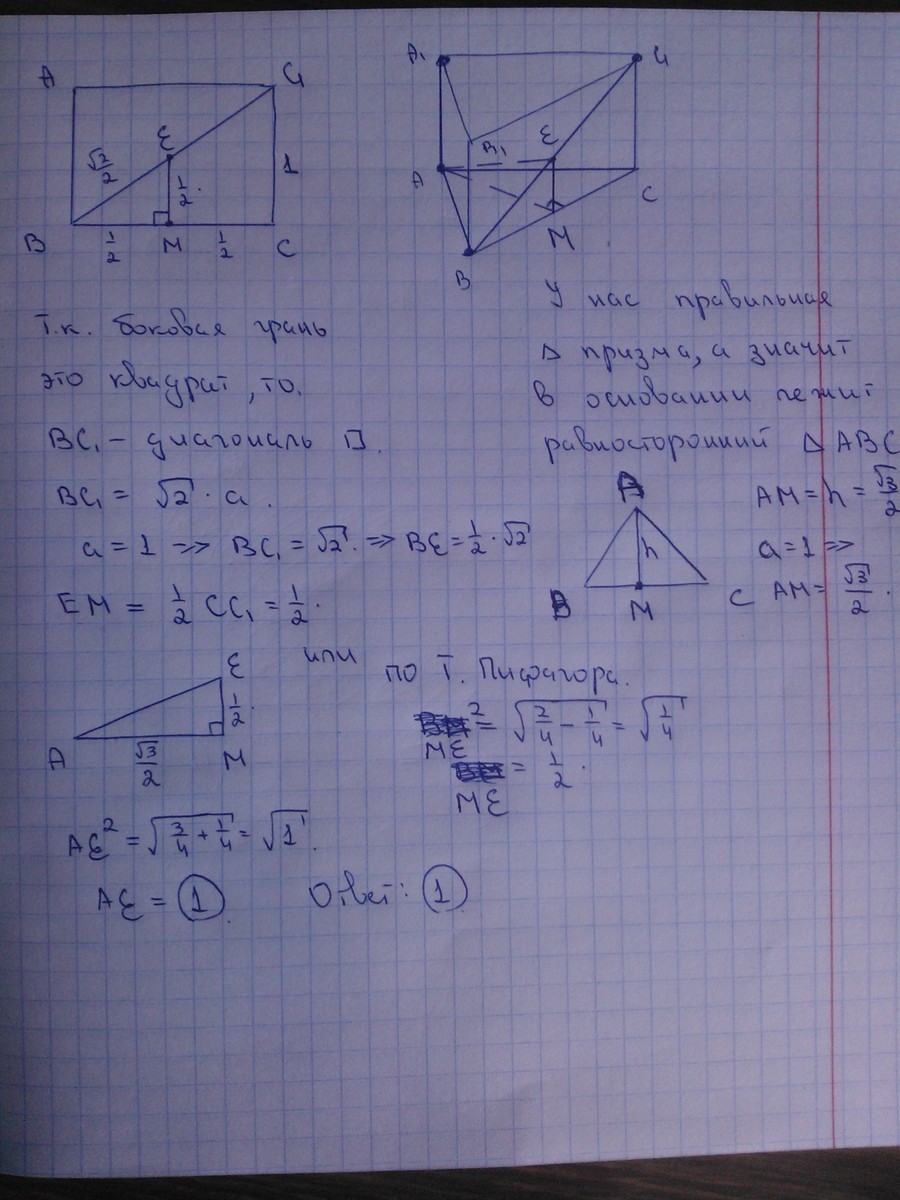 A C₁
ε
√2/2
1/2.
1
B 1/2 M 1/2 C
A₁ C₁
B₁ ε
A C
M
B
Т.к. боковая грань
это квадрат, то.
BC₁ – диагональ □.
BC₁ = √2 · a.
a = 1 => BC₁ = √2. => Bε = 1/2 · √2
EM = 1/2 CC₁ = 1/2.
У нас правильная
Δ призма, а значит
в основании лежит
равносторонний Δ ABC
A
h
B M C
AM = h = √3/2
a = 1 =>
AM = √3/2.
ε
1/2.
A √3/2 M
или
по Т. Пифагора.
Mε² = √(2/4 - 1/4) = √(1/4)
Mε = 1/2.
Aε² = √(3/4 + 1/4) = √1.
Aε = 1.
Ответ: 1